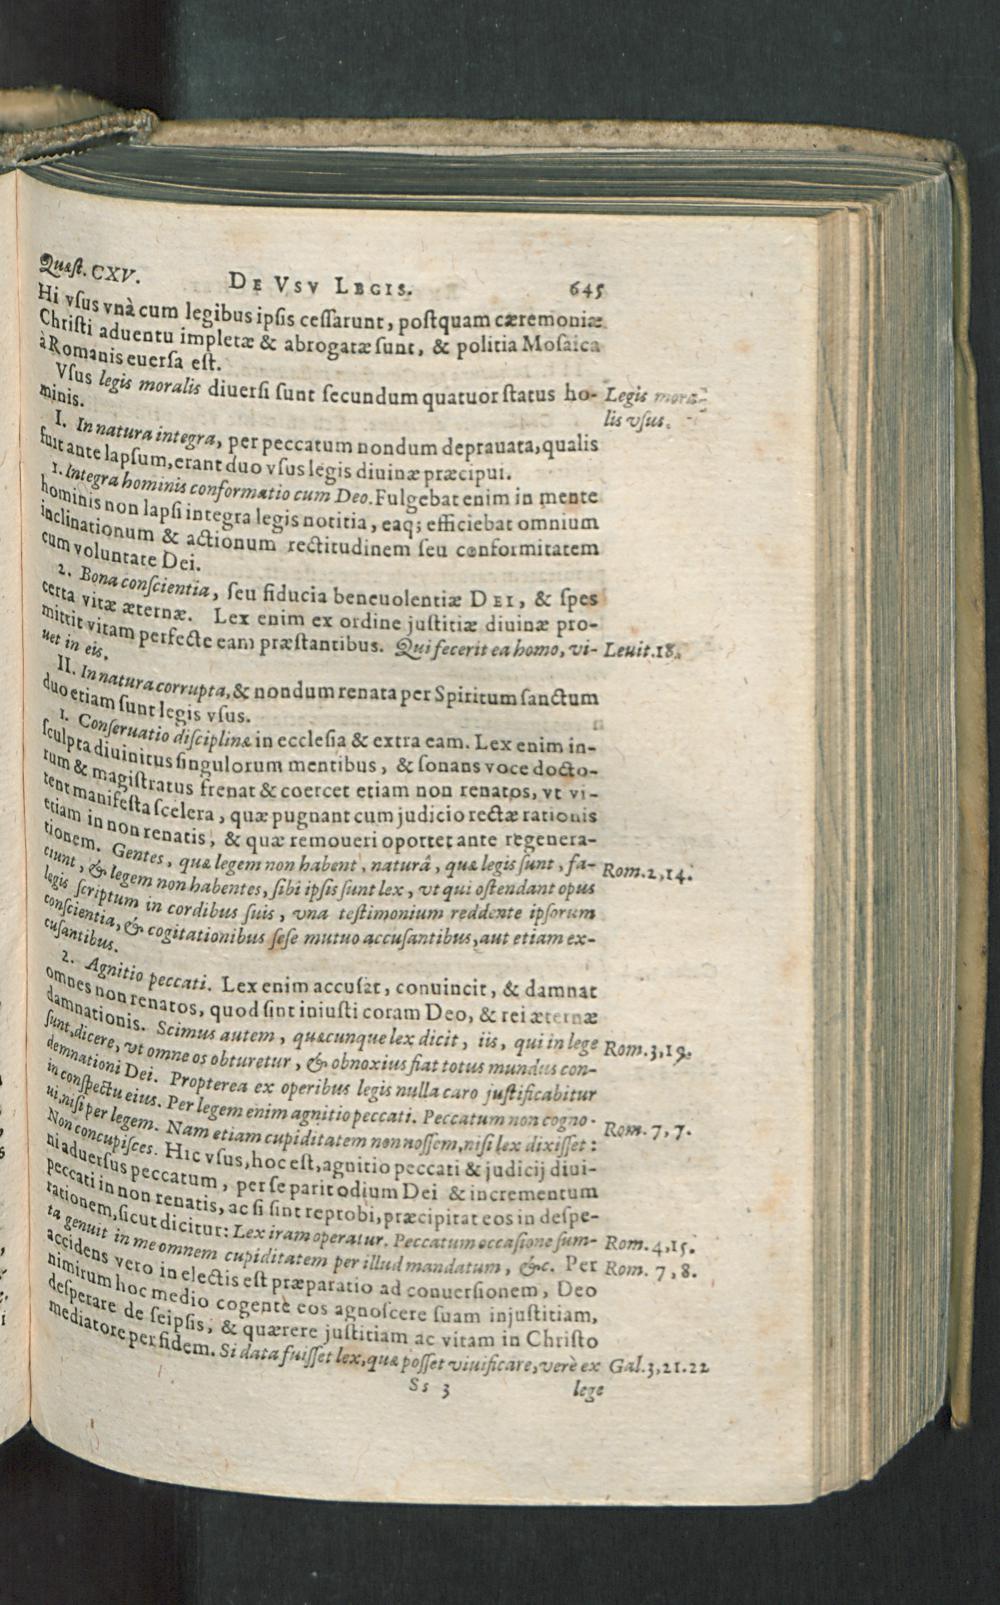 Quæst. CXV. DE VSV LEGIS. 645
Hi vſus vnà cum legibus ipſis ceſſarunt, poſtquam cæremoniæ
Chriſti aduentu impletæ & abrogatæ ſunt, & politia Moſaica
à Romanis euerſa eſt.
Vſus legis moralis diuerſi ſunt ſecundum quatuor ſtatus ho- Legis mora-
minis. lis vſus.
I. In natura integra, per peccatum nondum deprauata, qualis
fuit ante lapſum, erant duo vſus legis diuinæ præcipui.
1. Integra hominis conformatio cum Deo. Fulgebat enim in mente
hominis non lapſi integra legis notitia, eaq; efficiebat omnium
inclinationum & actionum rectitudinem ſeu conformitatem
cum voluntate Dei.
2. Bona conſcientia, ſeu fiducia beneuolentiæ DEI, & ſpes
certa vitæ æternæ. Lex enim ex ordine juſtitiæ diuinæ pro-
mittit vitam perfecte eam præſtantibus. Qui fecerit ea homo, vi- Leuit.18.
uet in eis.
II. In natura corrupta, & nondum renata per Spiritum ſanctum
duo etiam ſunt legis vſus.
1. Conſeruatio diſciplinæ in eccleſia & extra eam. Lex enim in-
ſculpta diuinitus ſingulorum mentibus, & ſonans voce docto-
rum & magiſtratus frenat & coercet etiam non renatos, vt vi-
tent manifeſta ſcelera, quæ pugnant cum judicio rectæ rationis
etiam in non renatis, & quæ remoueri oportet ante regenera-
tionem. Gentes, quæ legem non habent, naturâ, quæ legis ſunt, fa- Rom.2,14.
ciunt, & legem non habentes, ſibi ipſis ſunt lex, vt qui oſtendant opus
legis ſcriptum in cordibus ſuis, vna teſtimonium reddente ipſorum
conſcientia, & cogitationibus ſeſe mutuo accuſantibus, aut etiam ex-
cuſantibus.
2. Agnitio peccati. Lex enim accuſat, conuincit, & damnat
omnes non renatos, quod ſint iniuſti coram Deo, & rei æternæ
damnationis. Scimus autem, quæcunque lex dicit, iis, qui in lege Rom.3,19.
ſunt, dicere, vt omne os obturetur, & obnoxius fiat totus mundus con-
demnationi Dei. Propterea ex operibus legis nulla caro juſtificabitur
in conſpectu eius. Per legem enim agnitio peccati. Peccatum non cogno- Rom.7,7.
ui, niſi per legem. Nam etiam cupiditatem non noſſem, niſi lex dixiſſet:
Non concupiſces. HIC vſus, hoc eſt, agnitio peccati & judicij diui-
ni aduerſus peccatum, per ſe parit odium Dei & incrementum
peccati in non renatis, ac ſi ſint reprobi, præcipitat eos in deſpe-
rationem, ſicut dicitur: Lex iram operatur. Peccatum occaſione ſum- Rom.4,15.
ta genuit in me omnem cupiditatem per illud mandatum, &c. Per Rom. 7,8.
accidens vero in electis eſt præparatio ad conuerſionem, Deo
nimirum hoc medio cogente eos agnoſcere ſuam injuſtitiam,
deſperare de ſeipſis, & quærere juſtitiam ac vitam in Chriſto
mediatore per fidem. Si data fuiſſet lex, quæ poſſet viuificare, verè ex Gal.3,21.22
Ss 3 lege